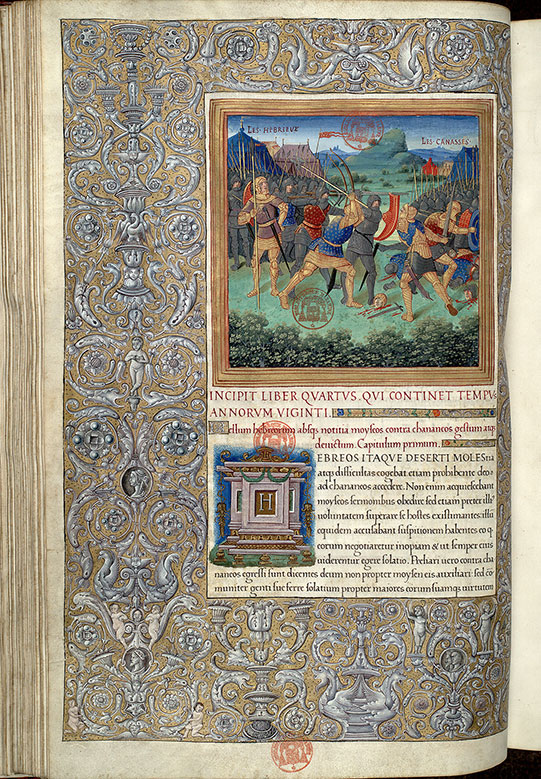 LES·HEBRIEUX
LES·CANASSES
INCIPIT LIBER QVARTVS. QVI CONTINET TEMPV
ANNORVM VIGINTI.
Bellum hebreorum absq; notitia moyseos contra chananeos gestum atq;
deuictum. Capitulum primum.
HEBREOS ITAQVE DESERTI MOLESTIA
atq; difficultas cogebat etiam prohibente deo
ad chananeos accedere. Non enim acquiescebant
moyseos sermonibus obedire sed etiam preter illiꝰ
uoluntatem superare se hostes existimantes illū
equidem accusabant suspitionem habentes eo q
eorum negotiaretur inopiam & ut semper eius
uiderentur egere solatio. Preliari uero contra cha
naneos egressi sunt dicentes deum non propter moysen eis auxiliari: sed co
muniter genti sue ferre solatium propter maiores eorum suamq; uirtutem